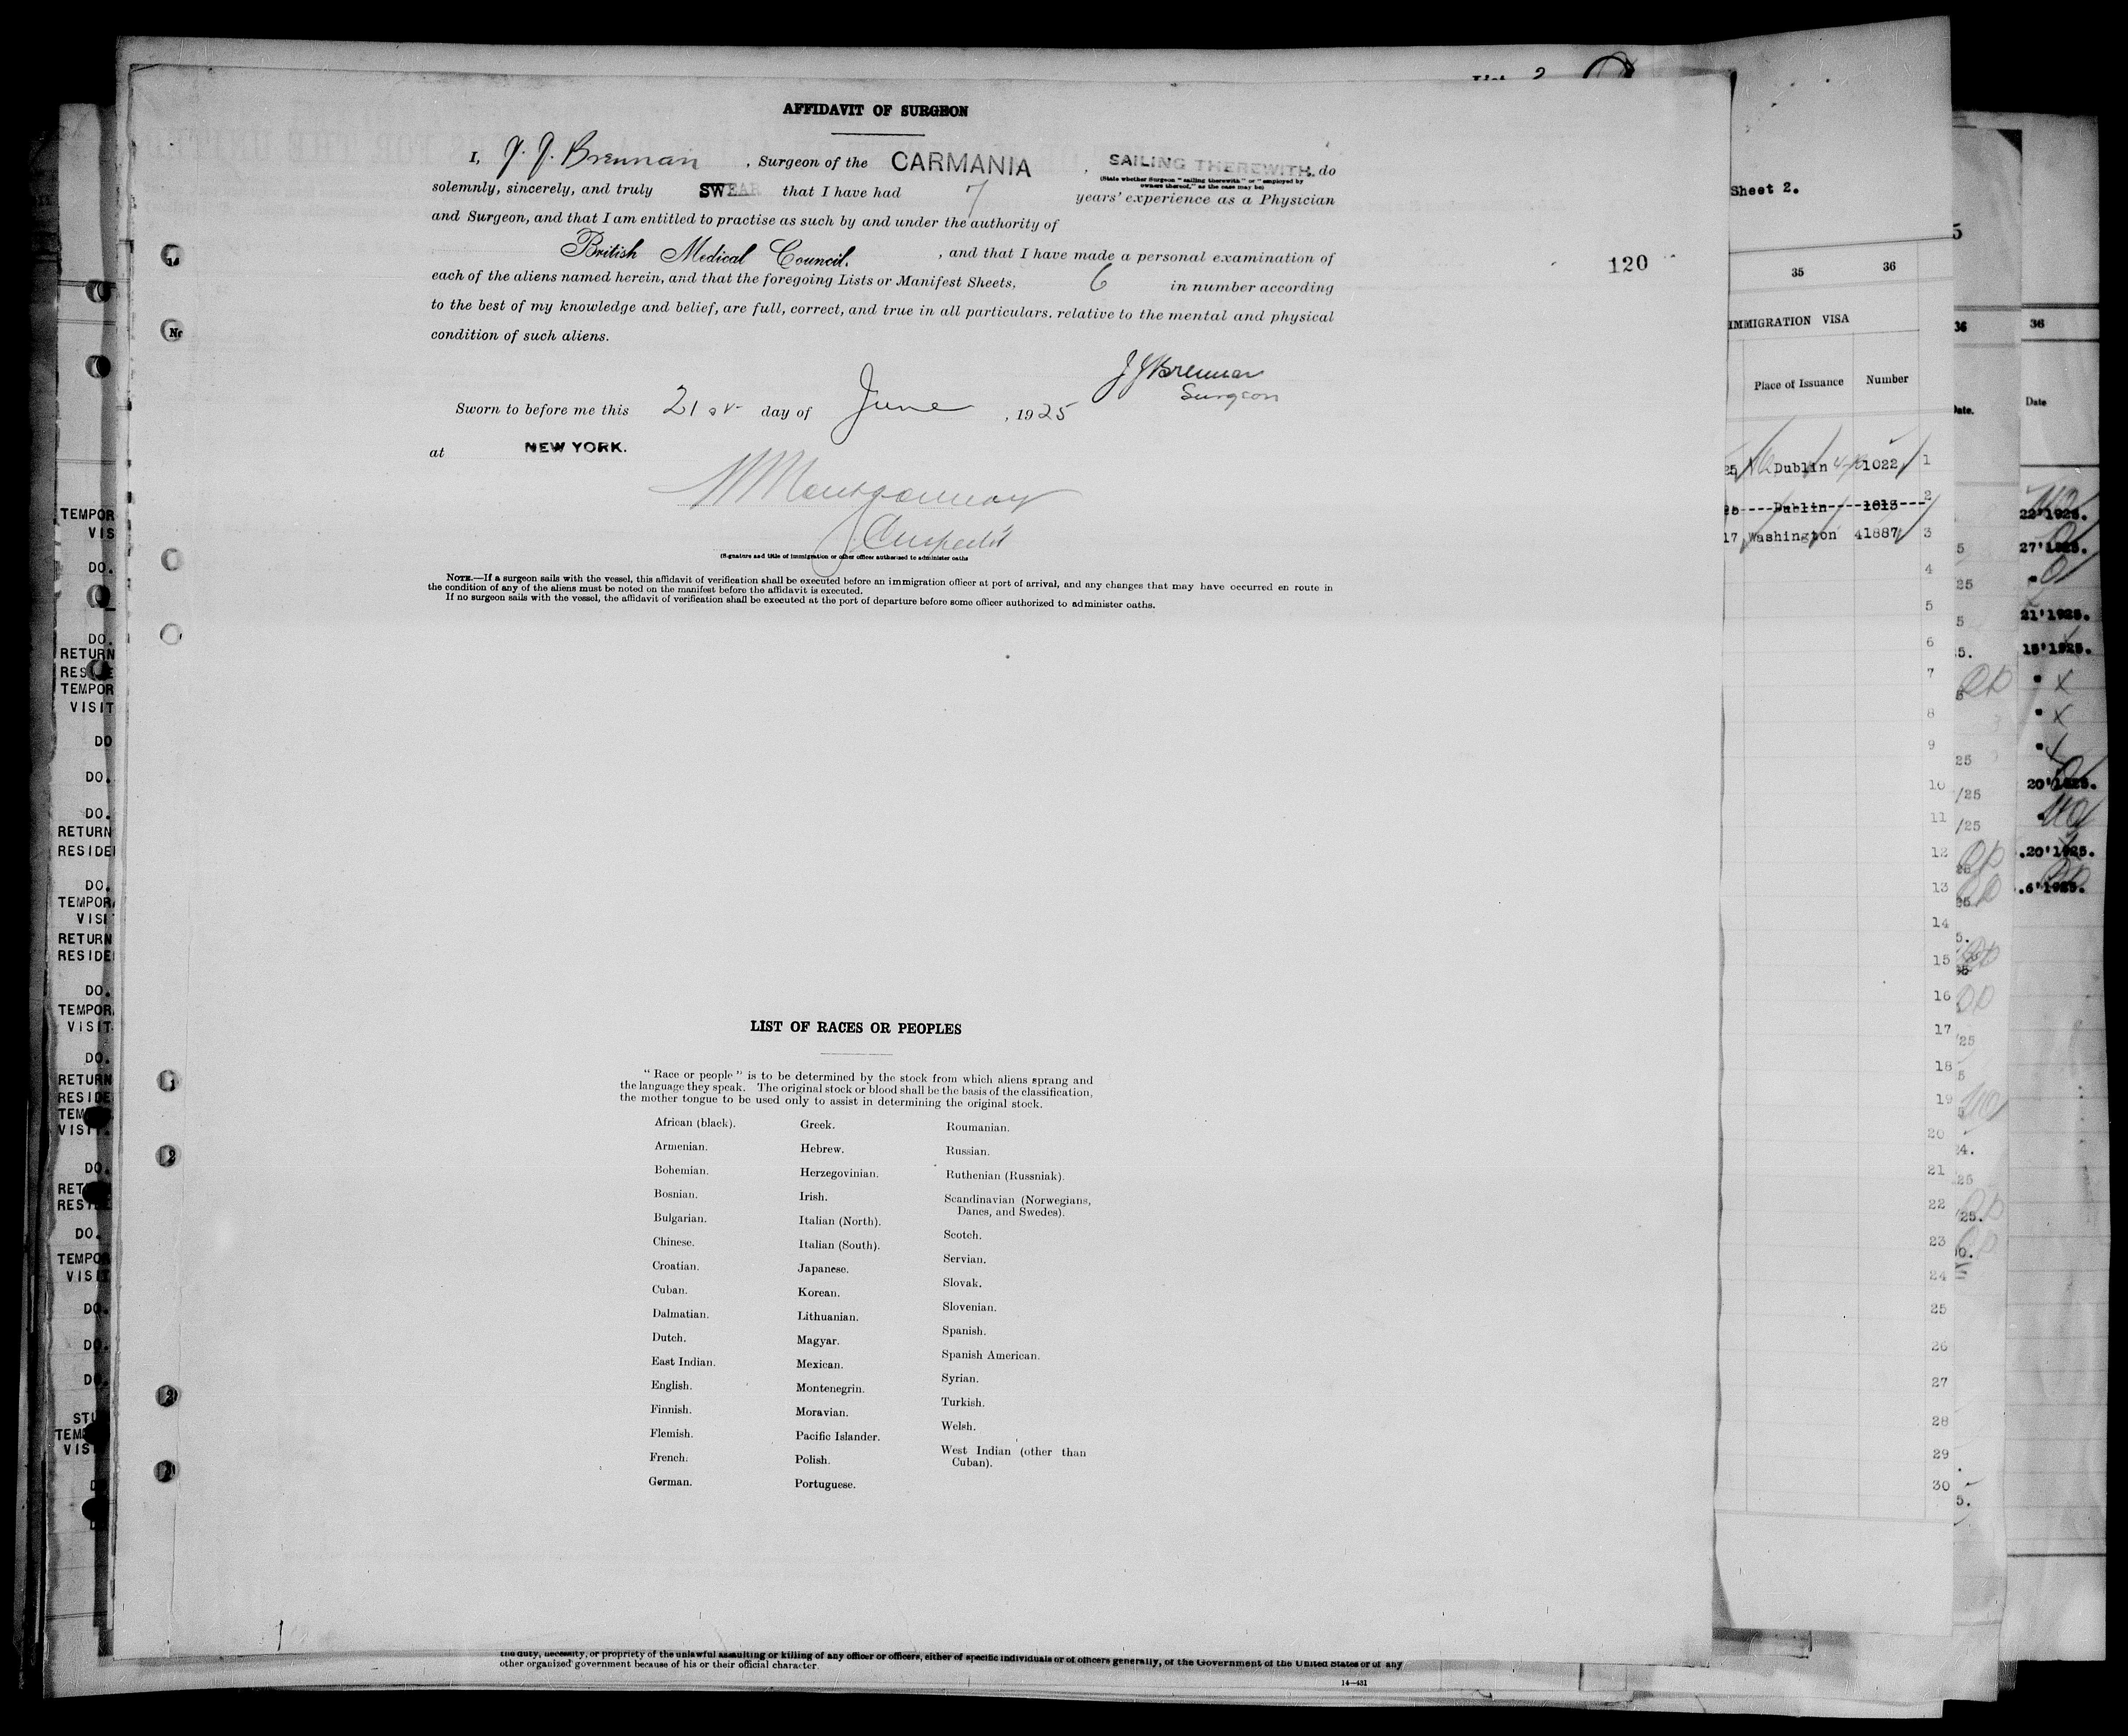 List 2
AFFIDAVIT OF SURGEON
I, J. J. Brennan, Surgeon of the CARMANIA, SAILING THEREWITH, do
(State whether Surgeon "sailing therewith" or "employed by
owners thereof," as the case may be)
solemnly, sincerely, and truly SWEAR that I have had 7 years' experience as a Physician
and Surgeon, and that I am entitled to practise as such by and under the authority of
British Medical Council. , and that I have made a personal examination of
each of the aliens named herein, and that the foregoing Lists or Manifest Sheets, 6 in number according
to the best of my knowledge and belief, are full, correct, and true in all particulars, relative to the mental and physical
condition of such aliens.
J J Brennan
Surgeon
Sworn to before me this 21st day of June, 1925
at NEW YORK.
Montgomery
Inspector
(Signature and title of immigration or other officer authorized to administer oaths
NOTE.—If a surgeon sails with the vessel, this affidavit of verification shall be executed before an immigration officer at port of arrival, and any changes that may have occurred en route in
the condition of any of the aliens must be noted on the manifest before the affidavit is executed.
If no surgeon sails with the vessel, the affidavit of verification shall be executed at the port of departure before some officer authorized to administer oaths.
120
LIST OF RACES OR PEOPLES
"Race or people" is to be determined by the stock from which aliens sprang and
the language they speak. The original stock or blood shall be the basis of the classification,
the mother tongue to be used only to assist in determining the original stock.
African (black).
Armenian.
Bohemian.
Bosnian.
Bulgarian.
Chinese.
Croatian.
Cuban.
Dalmatian.
Dutch.
East Indian.
English.
Finnish.
Flemish.
French.
German.
Greek.
Hebrew.
Herzegovinian.
Irish.
Italian (North).
Italian (South).
Japanese.
Korean.
Lithuanian.
Magyar.
Mexican.
Montenegrin.
Moravian.
Pacific Islander.
Polish.
Portuguese.
Roumanian.
Russian.
Ruthenian (Russniak).
Scandinavian (Norwegians,
Danes, and Swedes).
Scotch.
Servian.
Slovak.
Slovenian.
Spanish.
Spanish American.
Syrian.
Turkish.
Welsh.
West Indian (other than
Cuban).
the duty, necessity, or propriety of the unlawful assaulting or killing of any officer or officers, either of specific individuals or of officers generally, of the Government of the United States or of any
other organized government because of his or their official character.
14—431
Sheet 2.
35 36
IMMIGRATION VISA
Place of Issuance Number
25 Dublin 1022 1
25 Dublin 1013 2
17 Washington 41887 3
4
5
6
7
8
9
10
11
12
13
14
15
16
17
18
19
20
21
22
23
24
25
26
27
28
29
30
5
36
Date.
36
Date
22'1925.
27'1925.
21'1925.
15'1925.
20'1925.
.20'1925.
.6'1925.
TEMPOR
VIS
DO.
DO.
RETURN
RESIDE
TEMPOR
VISIT
DO
DO.
DO.
RETURN
RESIDE
DO.
TEMPOR
VISI
RETURN
RESIDE
DO.
TEMPOR
VISIT
DO.
RETURN
RESIDE
TEM
VISIT.
DO.
RET
RES
DO.
TEMPOR
VISIT
DO.
DO.
DO.
STU
TEM
VIS